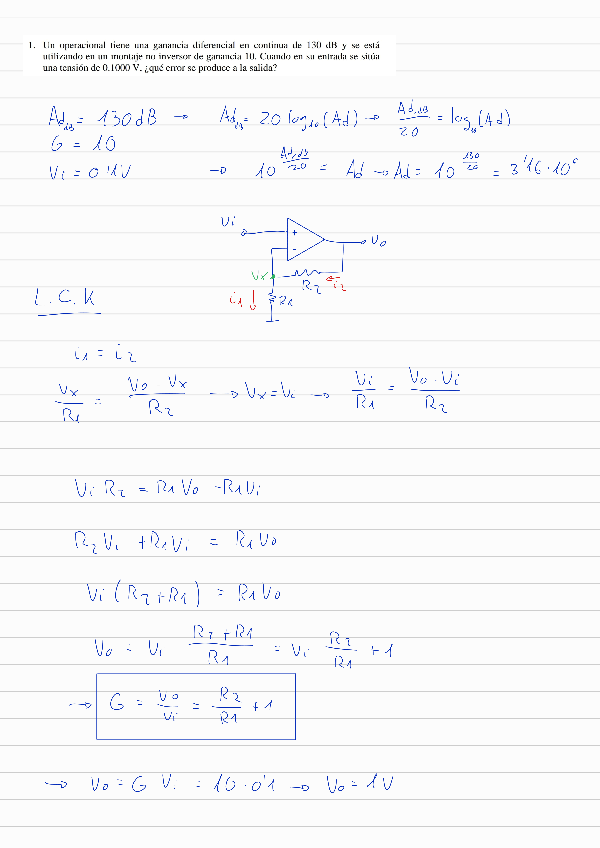 1. Un operacional tiene una ganancia diferencial en continua de 130 dB y se está
utilizando en un montaje no inversor de ganancia 10. Cuando en su entrada se sitúa
una tensión de 0.1000 V. ¿qué error se produce a la salida?
Ad_dB = 130 dB → Ad_dB = 20 log₁₀(Ad) → Ad,dB/20 = log₁₀(Ad)
G = 10
Vi = 0'1V → 10^(Ad,dB/20) = Ad → Ad = 10^(130/20) = 3'16·10⁶
Vi + - Vo
Vx R2 i2
i1 ↓ R1
L.C.K
i1 = i2
Vx/R1 = Vo - Vx/R2 → Vx = Vi → Vi/R1 = Vo - Vi/R2
Vi R2 = R1 Vo - R1 Vi
R2 Vi + R1 Vi = R1 Vo
Vi (R2 + R1) = R1 Vo
Vo = Vi R2 + R1/R1 = Vi R2/R1 + 1
→ G = Vo/Vi = R2/R1 + 1
→ Vo = G Vi = 10·0'1 → Vo = 1V